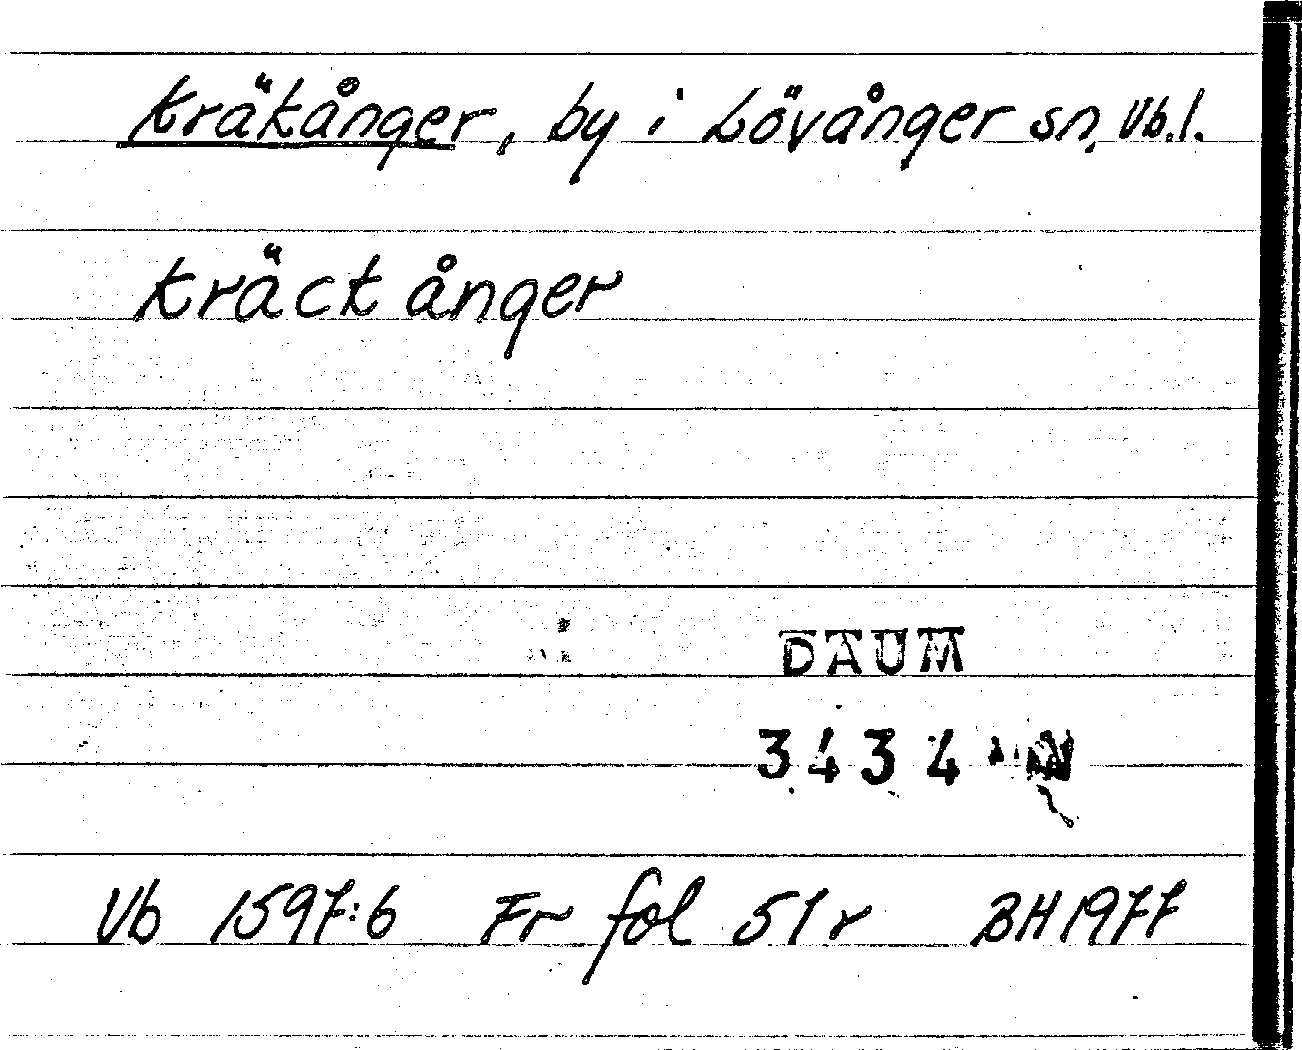 Kräkånger, by i Lövånger sn, Vb.l.
Kräckånger
DAUM
3434
Vb 1597:6 Fr fol 51r BH1977